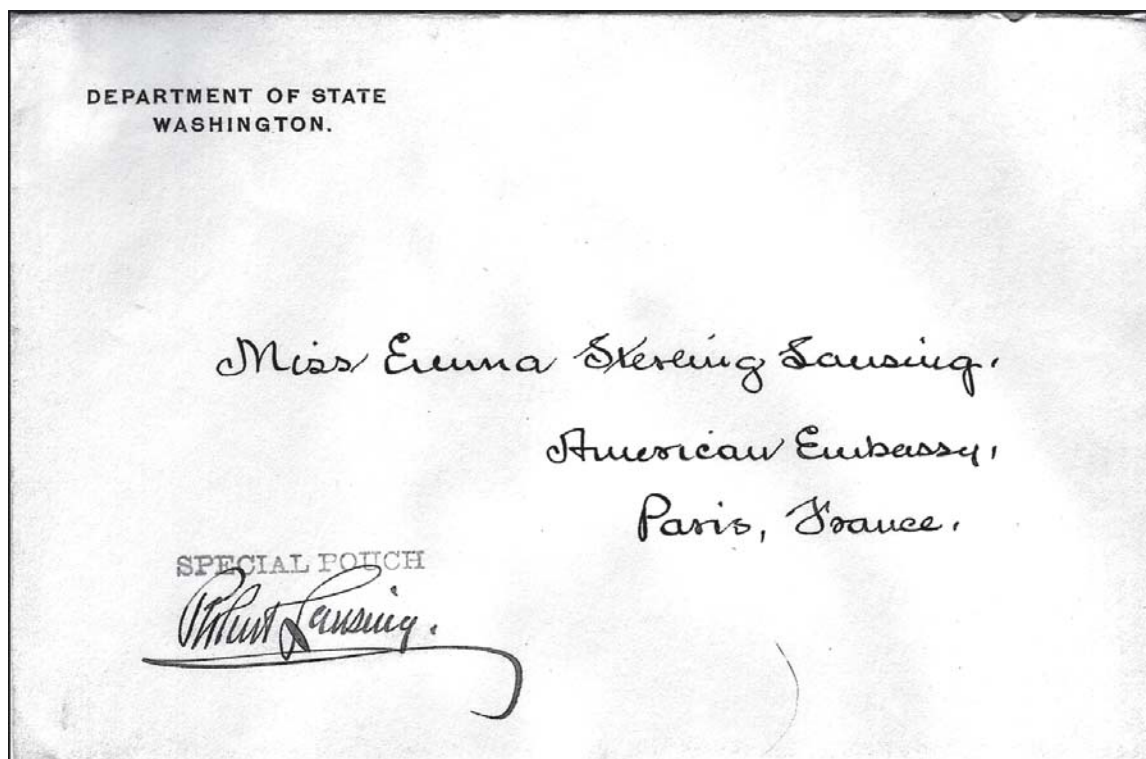 DEPARTMENT OF STATE
WASHINGTON.
Miss Emma Sterling Lansing.
American Embassy,
Paris, France.
SPECIAL POUCH
Robert Lansing.